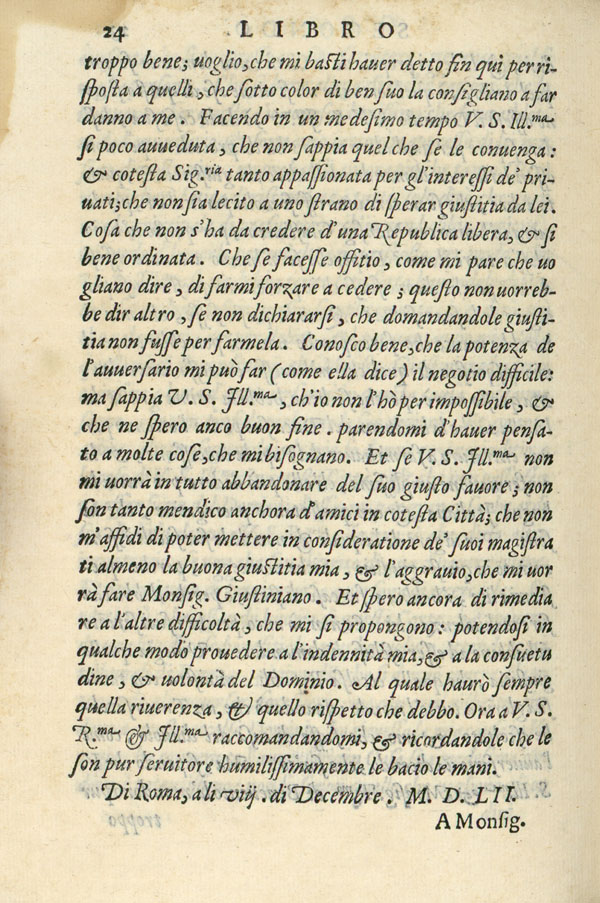 24 LIBRO
troppo bene; uoglio, che mi basti hauer detto fin qui per ri-
sposta a quelli, che sotto color di ben suo la consigliano a far
danno a me. Facendo in un medesimo tempo V. S. Ill.ma
si poco auueduta, che non sappia quel che se le conuenga:
& cotesta Sig.ria tanto appassionata per gl'interessi de' pri-
uati; che non sia lecito a uno strano di sperar giustitia da lei.
Cosa che non s'ha da credere d'una Republica libera, & si
bene ordinata. Che se facesse offitio, come mi pare che uo
gliano dire, di farmi forzare a cedere; questo non uorreb-
be dir altro, se non dichiararsi, che domandandole giusti-
tia non fusse per farmela. Conosco bene, che la potenza de
l'auuersario mi può far (come ella dice) il negotio difficile:
ma sappia V. S. Ill.ma, ch'io non l'hò per impossibile, &
che ne spero anco buon fine. parendomi d'hauer pensa-
to a molte cose, che mi bisognano. Et se V. S. Ill.ma non
mi uorrà in tutto abbandonare del suo giusto fauore; non
son tanto mendico anchora d'amici in cotesta Città; che non
m'affidi di poter mettere in consideratione de' suoi magistra
ti almeno la buona giustitia mia, & l'aggrauio, che mi uor
rà fare Monsig. Giustiniano. Et spero ancora di rimedia
re a l'altre difficoltà, che mi si propongono: potendosi in
qualche modo prouedere a l'indennità mia, & a la consuetu
dine, & uolontà del Dominio. Al quale haurò sempre
quella riuerenza, & quello rispetto che debbo. Ora a V. S.
R.ma & Ill.ma raccomandandomi, & ricordandole che le
son pur seruitore humilissimamente le bacio le mani.
Di Roma, a li viij. di Decembre. M. D. LII.
A Monsig.